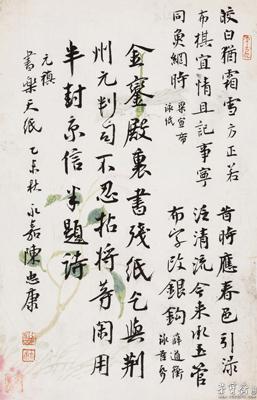 皎白犹霜雪方正若
布棋宜情且记事宁
同鱼网時
梁宣帝
詠纸
昔時應春色引渌
泛清流今来承玉管
布字改銀鉤
薛道衡
詠苔紙
金鑾殿裏書殘紙乞與荆
州元判司不忍拈將等閒用
半封京信半題詩
元稹
書樂天纸 乙未秋永嘉陳忠康